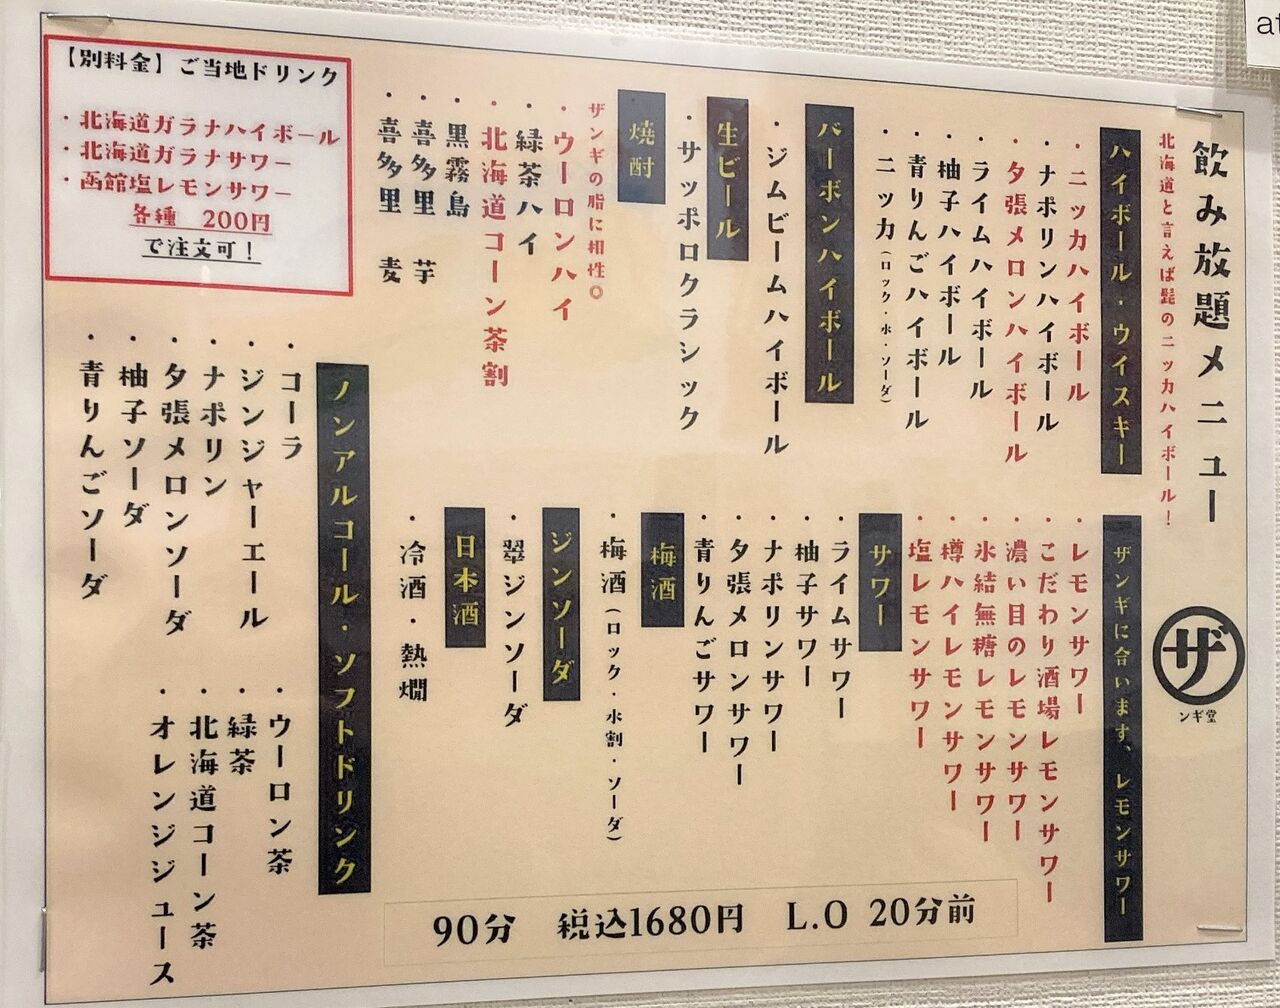 飲み放題メニュー
北海道と言えば髭のニッカハイボール！
ハイボール・ウイスキー
・ニッカハイボール
・ナポリンハイボール
・夕張メロンハイボール
・ライムハイボール
・柚子ハイボール
・青りんごハイボール
・ニッカ（ロック・水・ソーダ）
バーボンハイボール
・ジムビームハイボール
生ビール
・サッポロクラシック
焼酎
ザンギの脂に相性◎
・ウーロンハイ
・緑茶ハイ
・北海道コーン茶割
・黒霧島
・喜多里 芋
・喜多里 麦
【別料金】ご当地ドリンク
・北海道ガラナハイボール
・北海道ガラナサワー
・函館塩レモンサワー
各種 200円
で注文可！
ザ
ンギ堂
ザンギに合います、レモンサワー
・レモンサワー
・こだわり酒場レモンサワー
・濃い目のレモンサワー
・氷結無糖レモンサワー
・樽ハイレモンサワー
・塩レモンサワー
サワー
・ライムサワー
・柚子サワー
・ナポリンサワー
・夕張メロンサワー
・青りんごサワー
梅酒
・梅酒（ロック・水割・ソーダ）
ジンソーダ
・翠ジンソーダ
日本酒
・冷酒・熱燗
ノンアルコール・ソフトドリンク
・コーラ
・ジンジャーエール
・ナポリン
・夕張メロンソーダ
・柚子ソーダ
・青りんごソーダ
・ウーロン茶
・緑茶
・北海道コーン茶
・オレンジジュース
90分 税込1680円 L.O 20分前
at